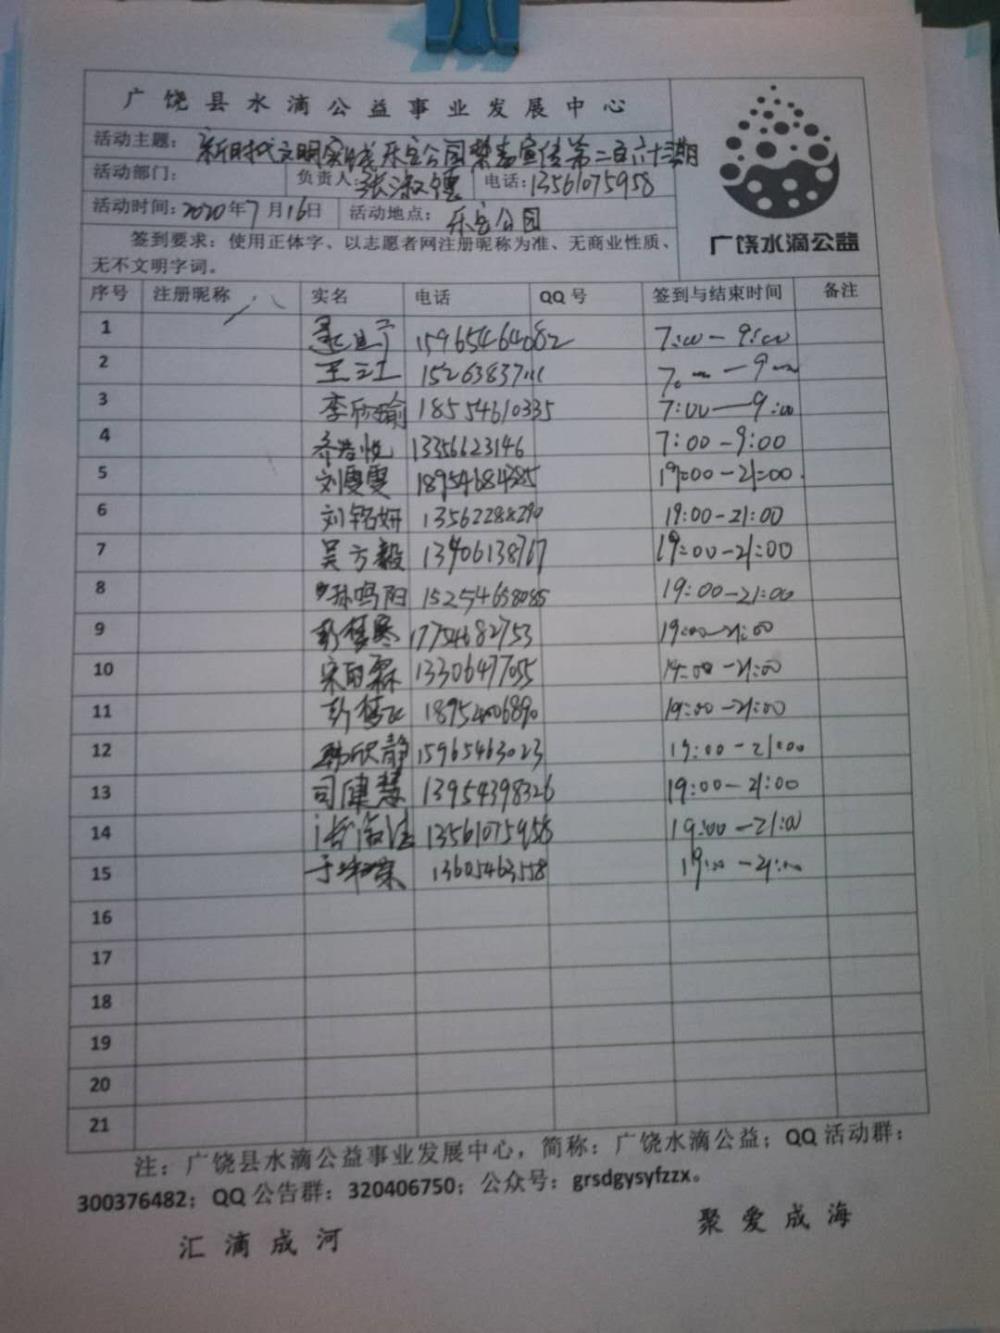 广饶县水滴公益事业发展中心
活动主题：新时代文明实践乐安公园禁毒宣传第二百六十三期
活动部门： 负责人：张淑德 电话：13561075958
活动时间：2020年7月16日 活动地点：乐安公园
签到要求：使用正体字、以志愿者网注册昵称为准、无商业性质、
无不文明字词。
广饶水滴公益
序号 注册昵称 实名 电话 QQ号 签到与结束时间 备注
1 15965464082 7:00-9:00
2 王江 15263837111 7:00-9:00
3 李欣瑜 18554610335 7:00-9:00
4 齐浩悦 13356623146 7:00-9:00
5 刘雯雯 18954684385 19:00-21:00
6 刘铭妍 13562288290 19:00-21:00
7 吴方毅 13406138767 19:00-21:00
8 孙鸣阳 15254658085 19:00-21:00
9 彭梦寒 17754682753 19:00-21:00
10 宋雨霖 13306477055 19:00-21:00
11 彭梦飞 18952406890 19:00-21:00
12 韩欣静 15965463023 19:00-21:00
13 司健慧 13954398326 19:00-21:00
14 13561075958 19:00-21:00
15 13605463558 19:00-21:00
16
17
18
19
20
21
注：广饶县水滴公益事业发展中心，简称：广饶水滴公益；QQ活动群：
300376482；QQ公告群：320406750；公众号：grsdgysyfzzx。
汇滴成河 聚爱成海